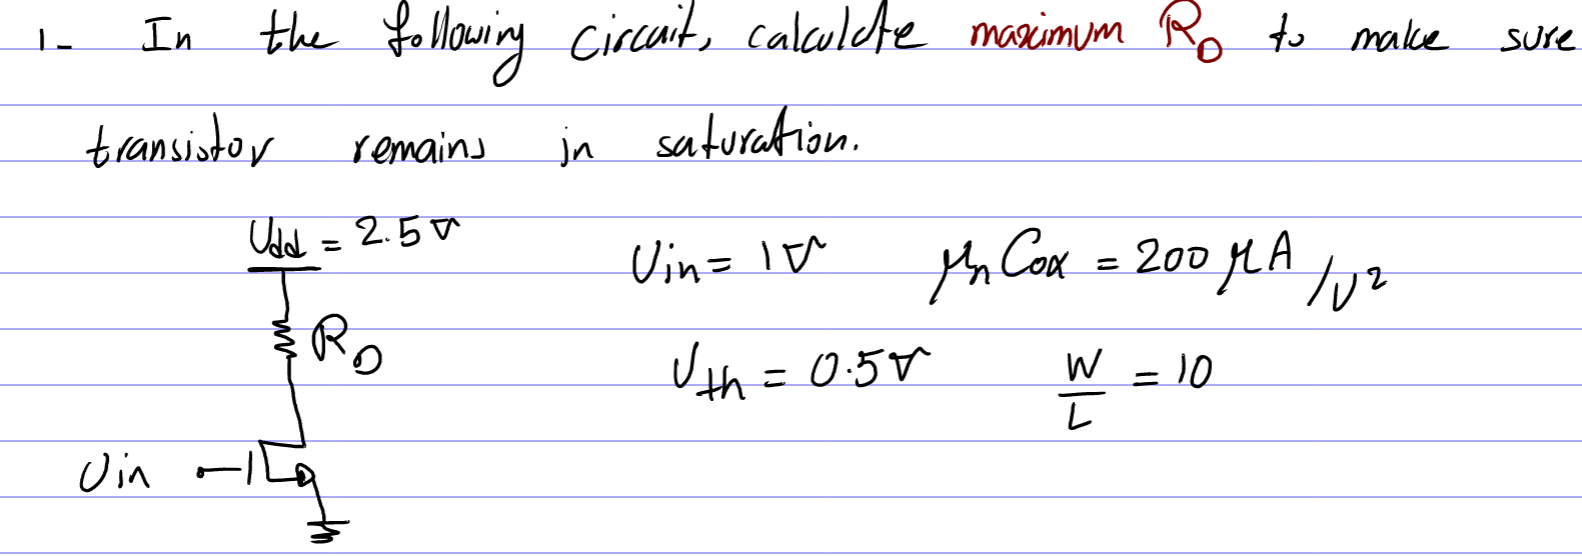 1- In the following circuit, calculate maximum RD to make sure
transistor remains in saturation.
Vdd = 2.5V
Vin = 1V μnCox = 200 μA/V²
RD
Vth = 0.5V W/L = 10
Vin